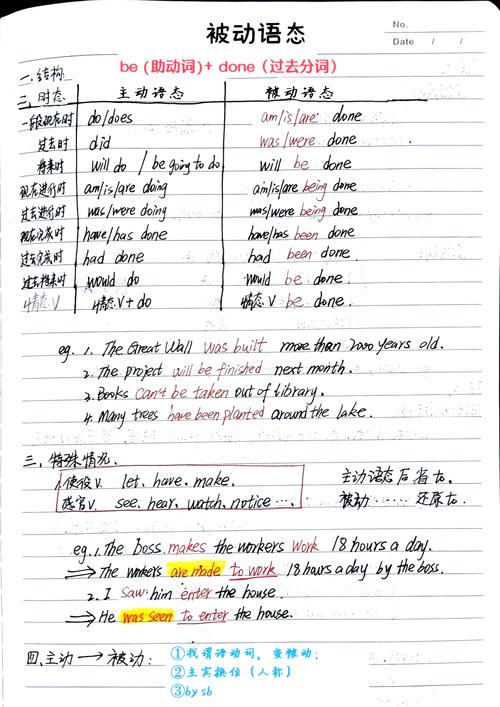 被动语态
No.
Date / /
一.结构: be (助动词)+ done (过去分词)
二.时态 主动语态 被动语态
一般现在时 do/does am/is/are done
过去时 did was/were done
将来时 will do / be going to do will be done
现在进行时 am/is/are doing am/is/are being done
过去进行时 was/were doing was/were being done
现在完成时 have/has done have/has been done
过去完成时 had done had been done
过去将来时 would do would be done.
情态V 情态V+do 情态V be done.
eg. 1. The Great Wall was built more than 2000 years old.
2. The project will be finished next month.
3. Books can't be taken out of library.
4. Many trees have been planted around the lake.
三.特殊情况.
使役V. let, have, make. 主动语态后省to.
感官V. see, hear, watch, notice ···. 被动 ······ 还原to.
eg. 1. The boss makes the workers work 18 hours a day.
⇒ The workers are made to work 18 hours a day by the boss.
2. I saw him enter the house.
⇒ He was seen to enter the house.
四.主动 → 被动: ①找谓语动词,变被动;
②主宾换位(人称)
③by sb